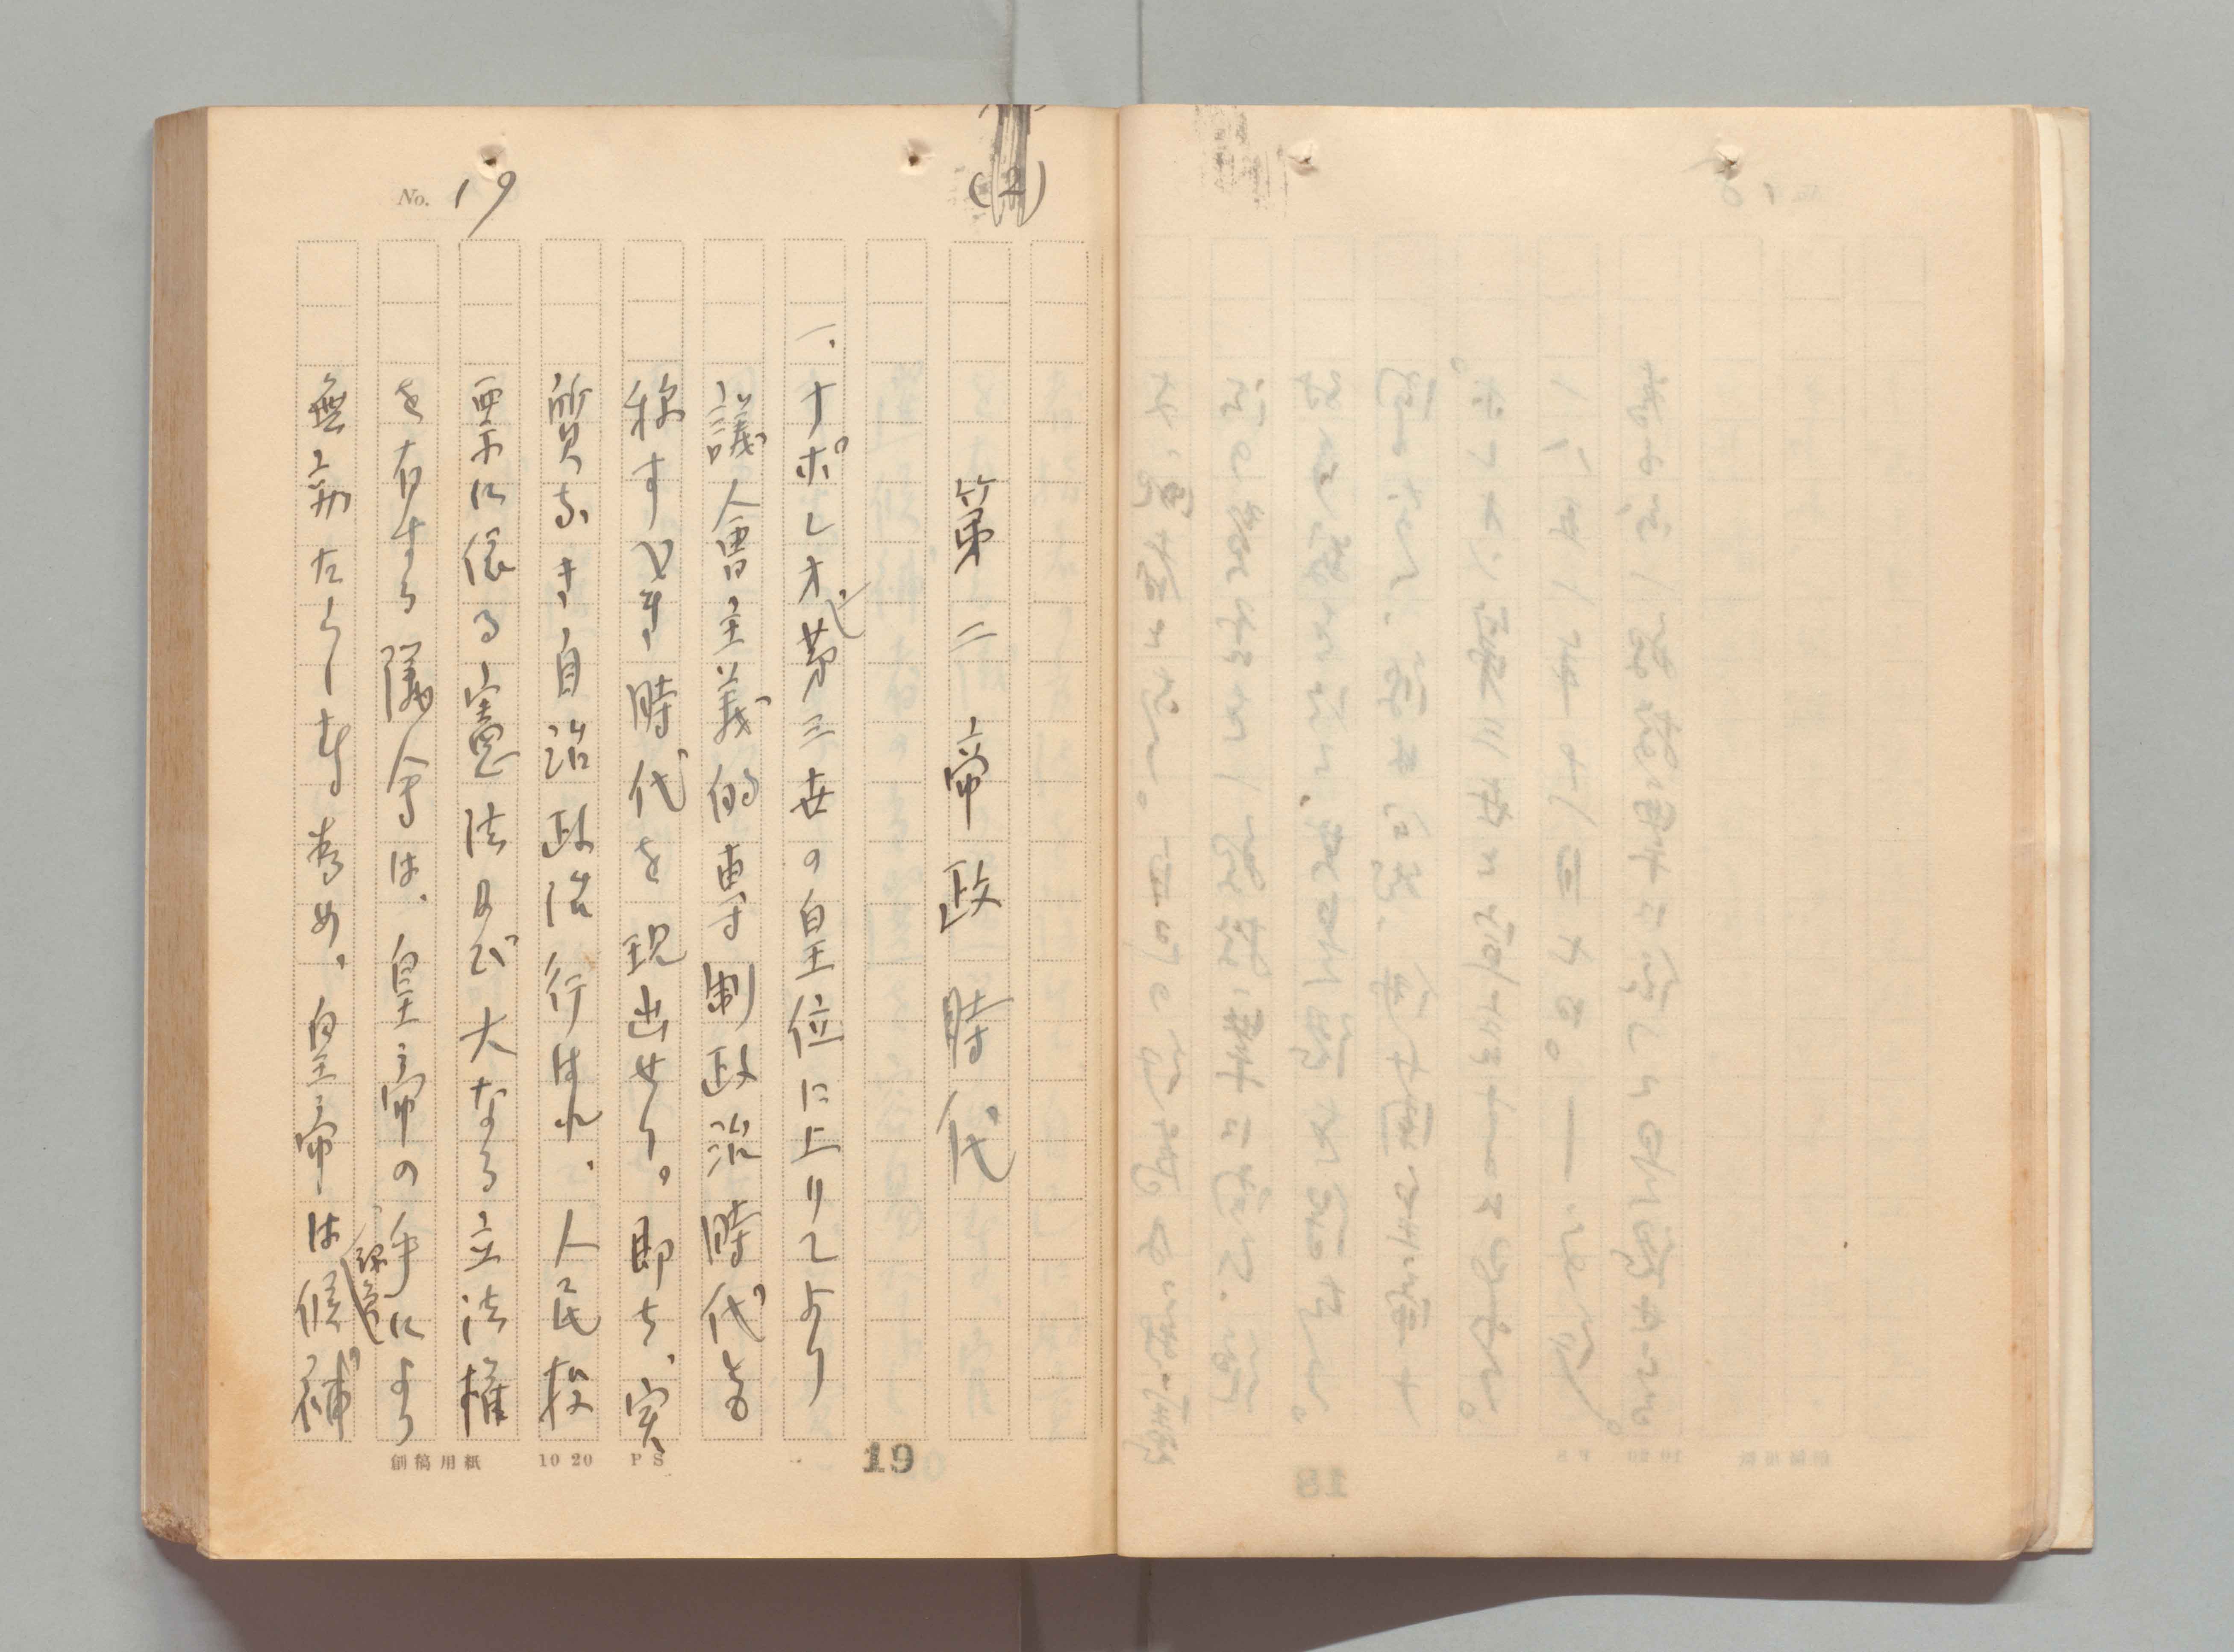 No. 19
(2)
第二帝政時代
一、ナポレオン第三世の皇位に上りてより
議会主義的専制政治時代とも
称すべき時代を現出せり。即ち、実
質なき自治政治行はれ、人民投
票に依る憲法及び大なる立法権
を有する議会は、皇帝の手による
無効たらしむる為め、皇帝は候補
創稿用紙 10 20 PS
19